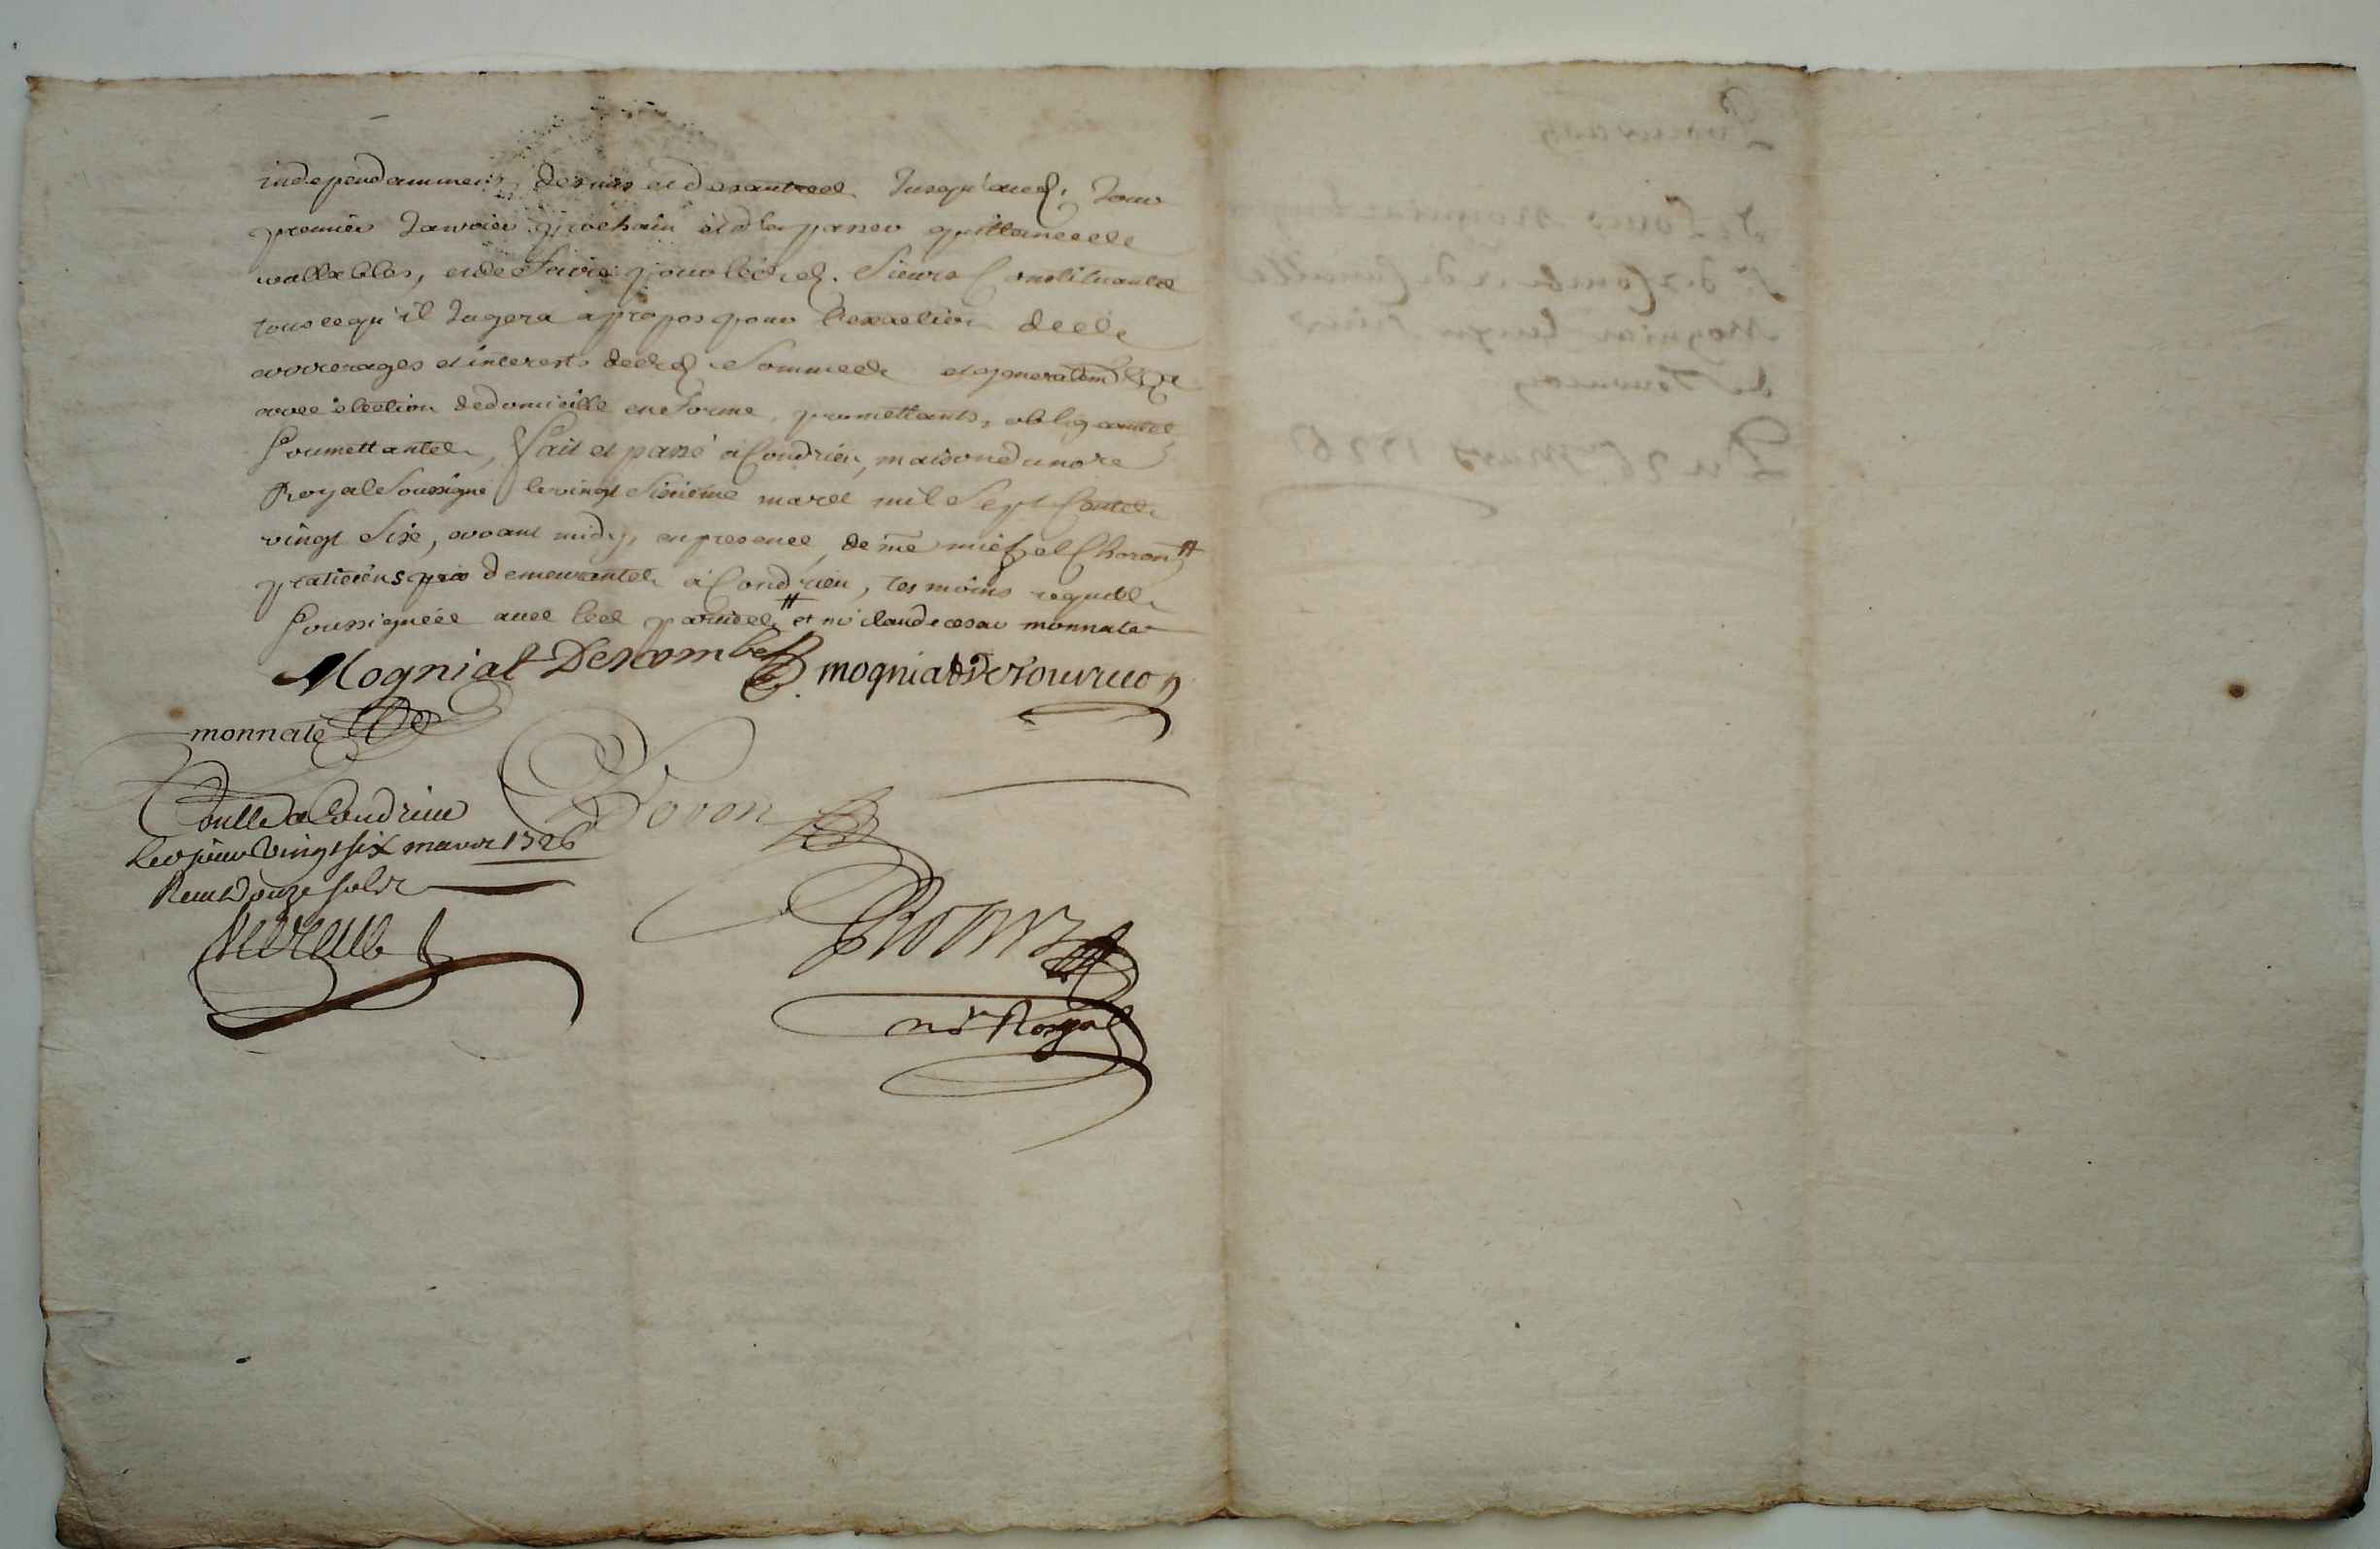 independamment des uns et des autres Jusqu'aud. Jour
premier Janvier prochain et d'en passer quittances
vallables, et de faire pour lesd. Sieurs Constituants
tous ce qu'il Jugera apropos pour l'exaction des
arrerages et interests desd. Sommes et generalem
avec élection de domicille en forme, promettants, obligeants
Soumettants, fait et passé a Condrieu, maison du no.re
Royal Soussigné le vingt Sixiéme mars mil Sept Cents
vingt Six, avant midy, en presence de me michel Choron #
praticiens demeurants à Condrieu, tesmoins requis
Soussignés avec les parties # et me claude cesar monnate
Mogniat Descombes mogniat De Tournon
monnate
Choron
Conllé a Condrieu
Le vingt six mars 1726
Receu Douze sols
no.re Royal
Sr Louis mogniat
Sr des Combes
Mogniat
de Tournon
Du 26 Mars 1726